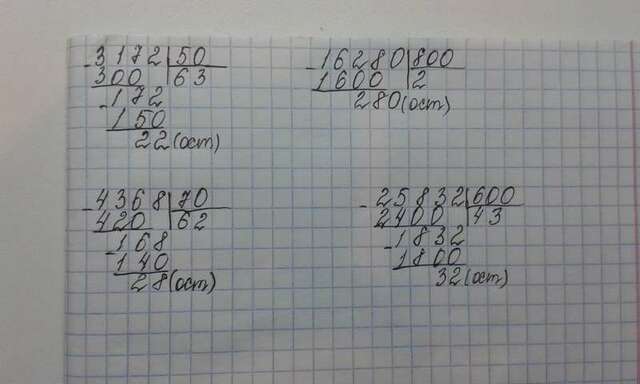 -3172 50
300 63
-172
150
22(ост)
-16280 800
1600 2
280(ост)
-4368 70
420 62
-168
140
28(ост)
-25832 600
2400 43
-1832
1800
32(ост)